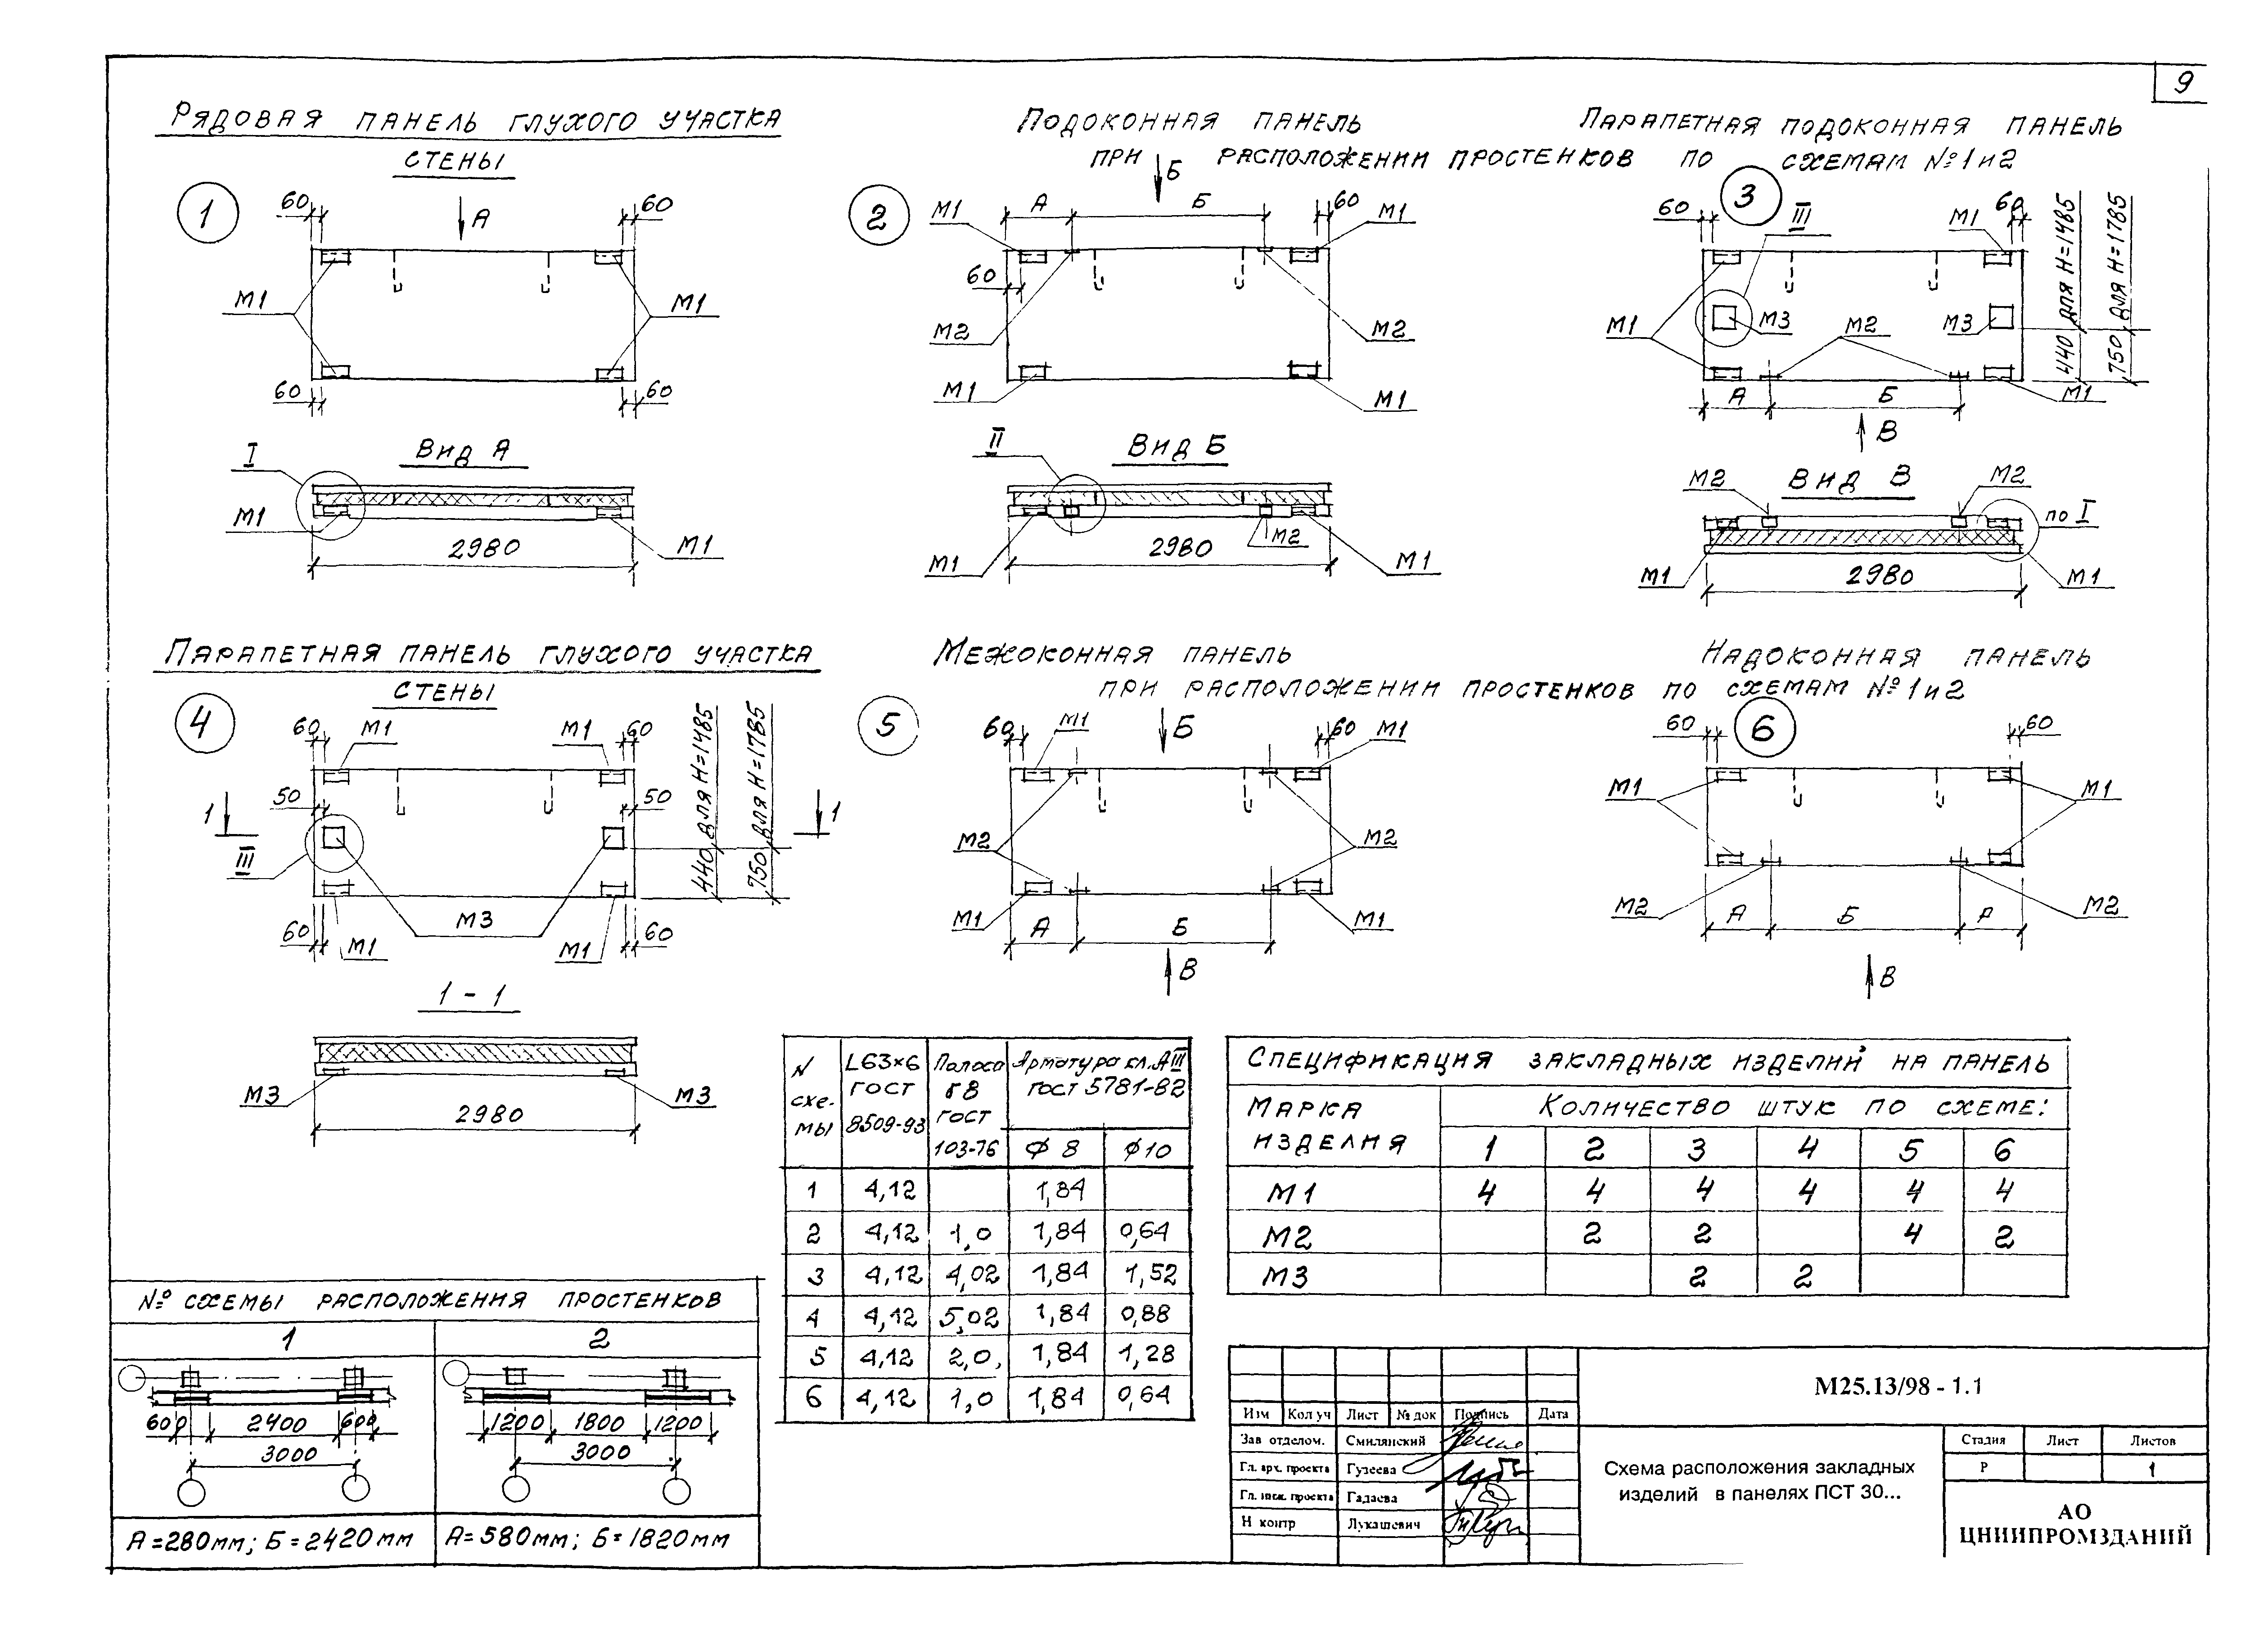 9
РЯДОВАЯ ПАНЕЛЬ ГЛУХОГО УЧАСТКА
СТЕНЫ
1
60
А
60
М1
М1
60
60
Вид А
I
М1
М1
2980
ПОДОКОННАЯ ПАНЕЛЬ
ПАРАПЕТНАЯ ПОДОКОННАЯ ПАНЕЛЬ
ПРИ РАСПОЛОЖЕНИИ ПРОСТЕНКОВ ПО СХЕМАМ №1 и 2
2
Б
М1
А
Б
60
М1
60
М2
М2
М1
М1
II
Вид Б
М1
2980
М2
М1
3
60
III
М1
60
М1
М3
М2
М3
440 ДЛЯ Н=1485
750 ДЛЯ Н=1785
А
Б
М1
В
М2
Вид В
М2
по I
М1
2980
М1
ПАРАПЕТНАЯ ПАНЕЛЬ ГЛУХОГО УЧАСТКА
СТЕНЫ
4
60
М1
М1
60
50
50
1
1
III
440 ДЛЯ Н=1485
750 ДЛЯ Н=1785
М3
60
М1
М1
60
1 - 1
М3
М3
2980
МЕЖОКОННАЯ ПАНЕЛЬ
НАДОКОННАЯ ПАНЕЛЬ
ПРИ РАСПОЛОЖЕНИИ ПРОСТЕНКОВ ПО СХЕМАМ №1 и 2
5
60
М1
Б
60
М1
М2
М2
М1
А
Б
М1
В
6
60
60
М1
М1
М2
А
Б
А
М2
В
N схе-мы
L63×6 ГОСТ 8509-93
Полоса δ8 ГОСТ 103-76
Арматура кл.АIII ГОСТ 5781-82
Ф 8
Ф10
1 4,12 1,84
2 4,12 1,0 1,84 0,64
3 4,12 4,02 1,84 1,52
4 4,12 5,02 1,84 0,88
5 4,12 2,0, 1,84 1,28
6 4,12 1,0 1,84 0,64
СПЕЦИФИКАЦИЯ ЗАКЛАДНЫХ ИЗДЕЛИЙ НА ПАНЕЛЬ
МАРКА ИЗДЕЛИЯ
КОЛИЧЕСТВО ШТУК ПО СХЕМЕ:
1 2 3 4 5 6
М1 4 4 4 4 4 4
М2 2 2 4 2
М3 2 2
№ СХЕМЫ РАСПОЛОЖЕНИЯ ПРОСТЕНКОВ
1 2
600 2400 600
3000
1200 1800 1200
3000
А=280мм; Б=2420мм
А=580мм; Б=1820мм
М25.13/98 - 1.1
Изм Кол уч Лист № док Подпись Дата
Зав отделом. Смилянский
Гл. арх. проекта Гузеева
Гл. инж. проекта Гадаева
Н контр Лукашевич
Схема расположения закладных
изделий в панелях ПСТ 30...
Стадия Лист Листов
Р 1
АО
ЦНИИПРОМЗДАНИЙ